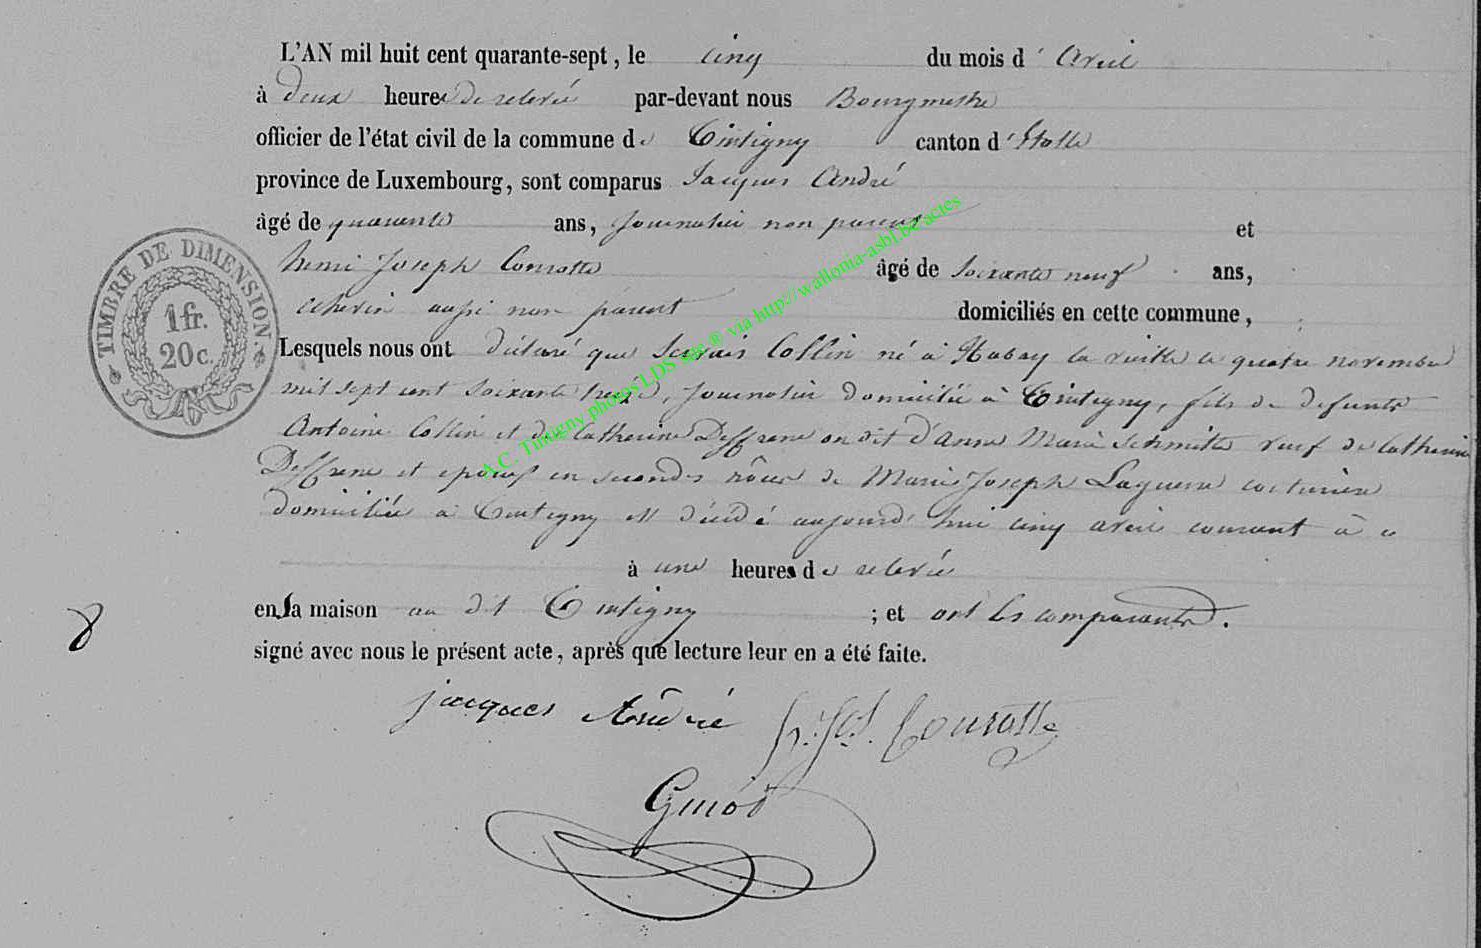 L'AN mil huit cent quarante-sept, le cinq du mois d'Avril
à deux heures de relevée par-devant nous Bourgmestre
officier de l'état civil de la commune de Tintigny canton d'Etalle
province de Luxembourg, sont comparus Jacques André
âgé de quarante ans, journalier non parent et
henri Joseph Conrotte âgé de soixante neuf ans,
echevin aussi non parent domiciliés en cette commune,
Lesquels nous ont déclaré que Servais Collin né à Habay la vieille le quatre novembre
mil sept cent soixante treize, journalier domicilié à Tintigny, fils de defunts
Antoine Collin et de Catherine on dit d'Anne Marie Schmitz veuf de Catherine
et epoux en secondes nôces de Marie Joseph Laguerre couturière
domiciliée à Tintigny est décédé aujourd'hui cinq avril courant à
à une heures de relevée
en sa maison au dit Tintigny ; et ont les comparants.
signé avec nous le présent acte, après que lecture leur en a été faite.
TIMBRE DE DIMENSION.
1 fr.
20 c.
8
jacques André h. Jos. Conrotte
A.C. Tintigny photos LDS site ® via http://wallonia-asbl.be/actes